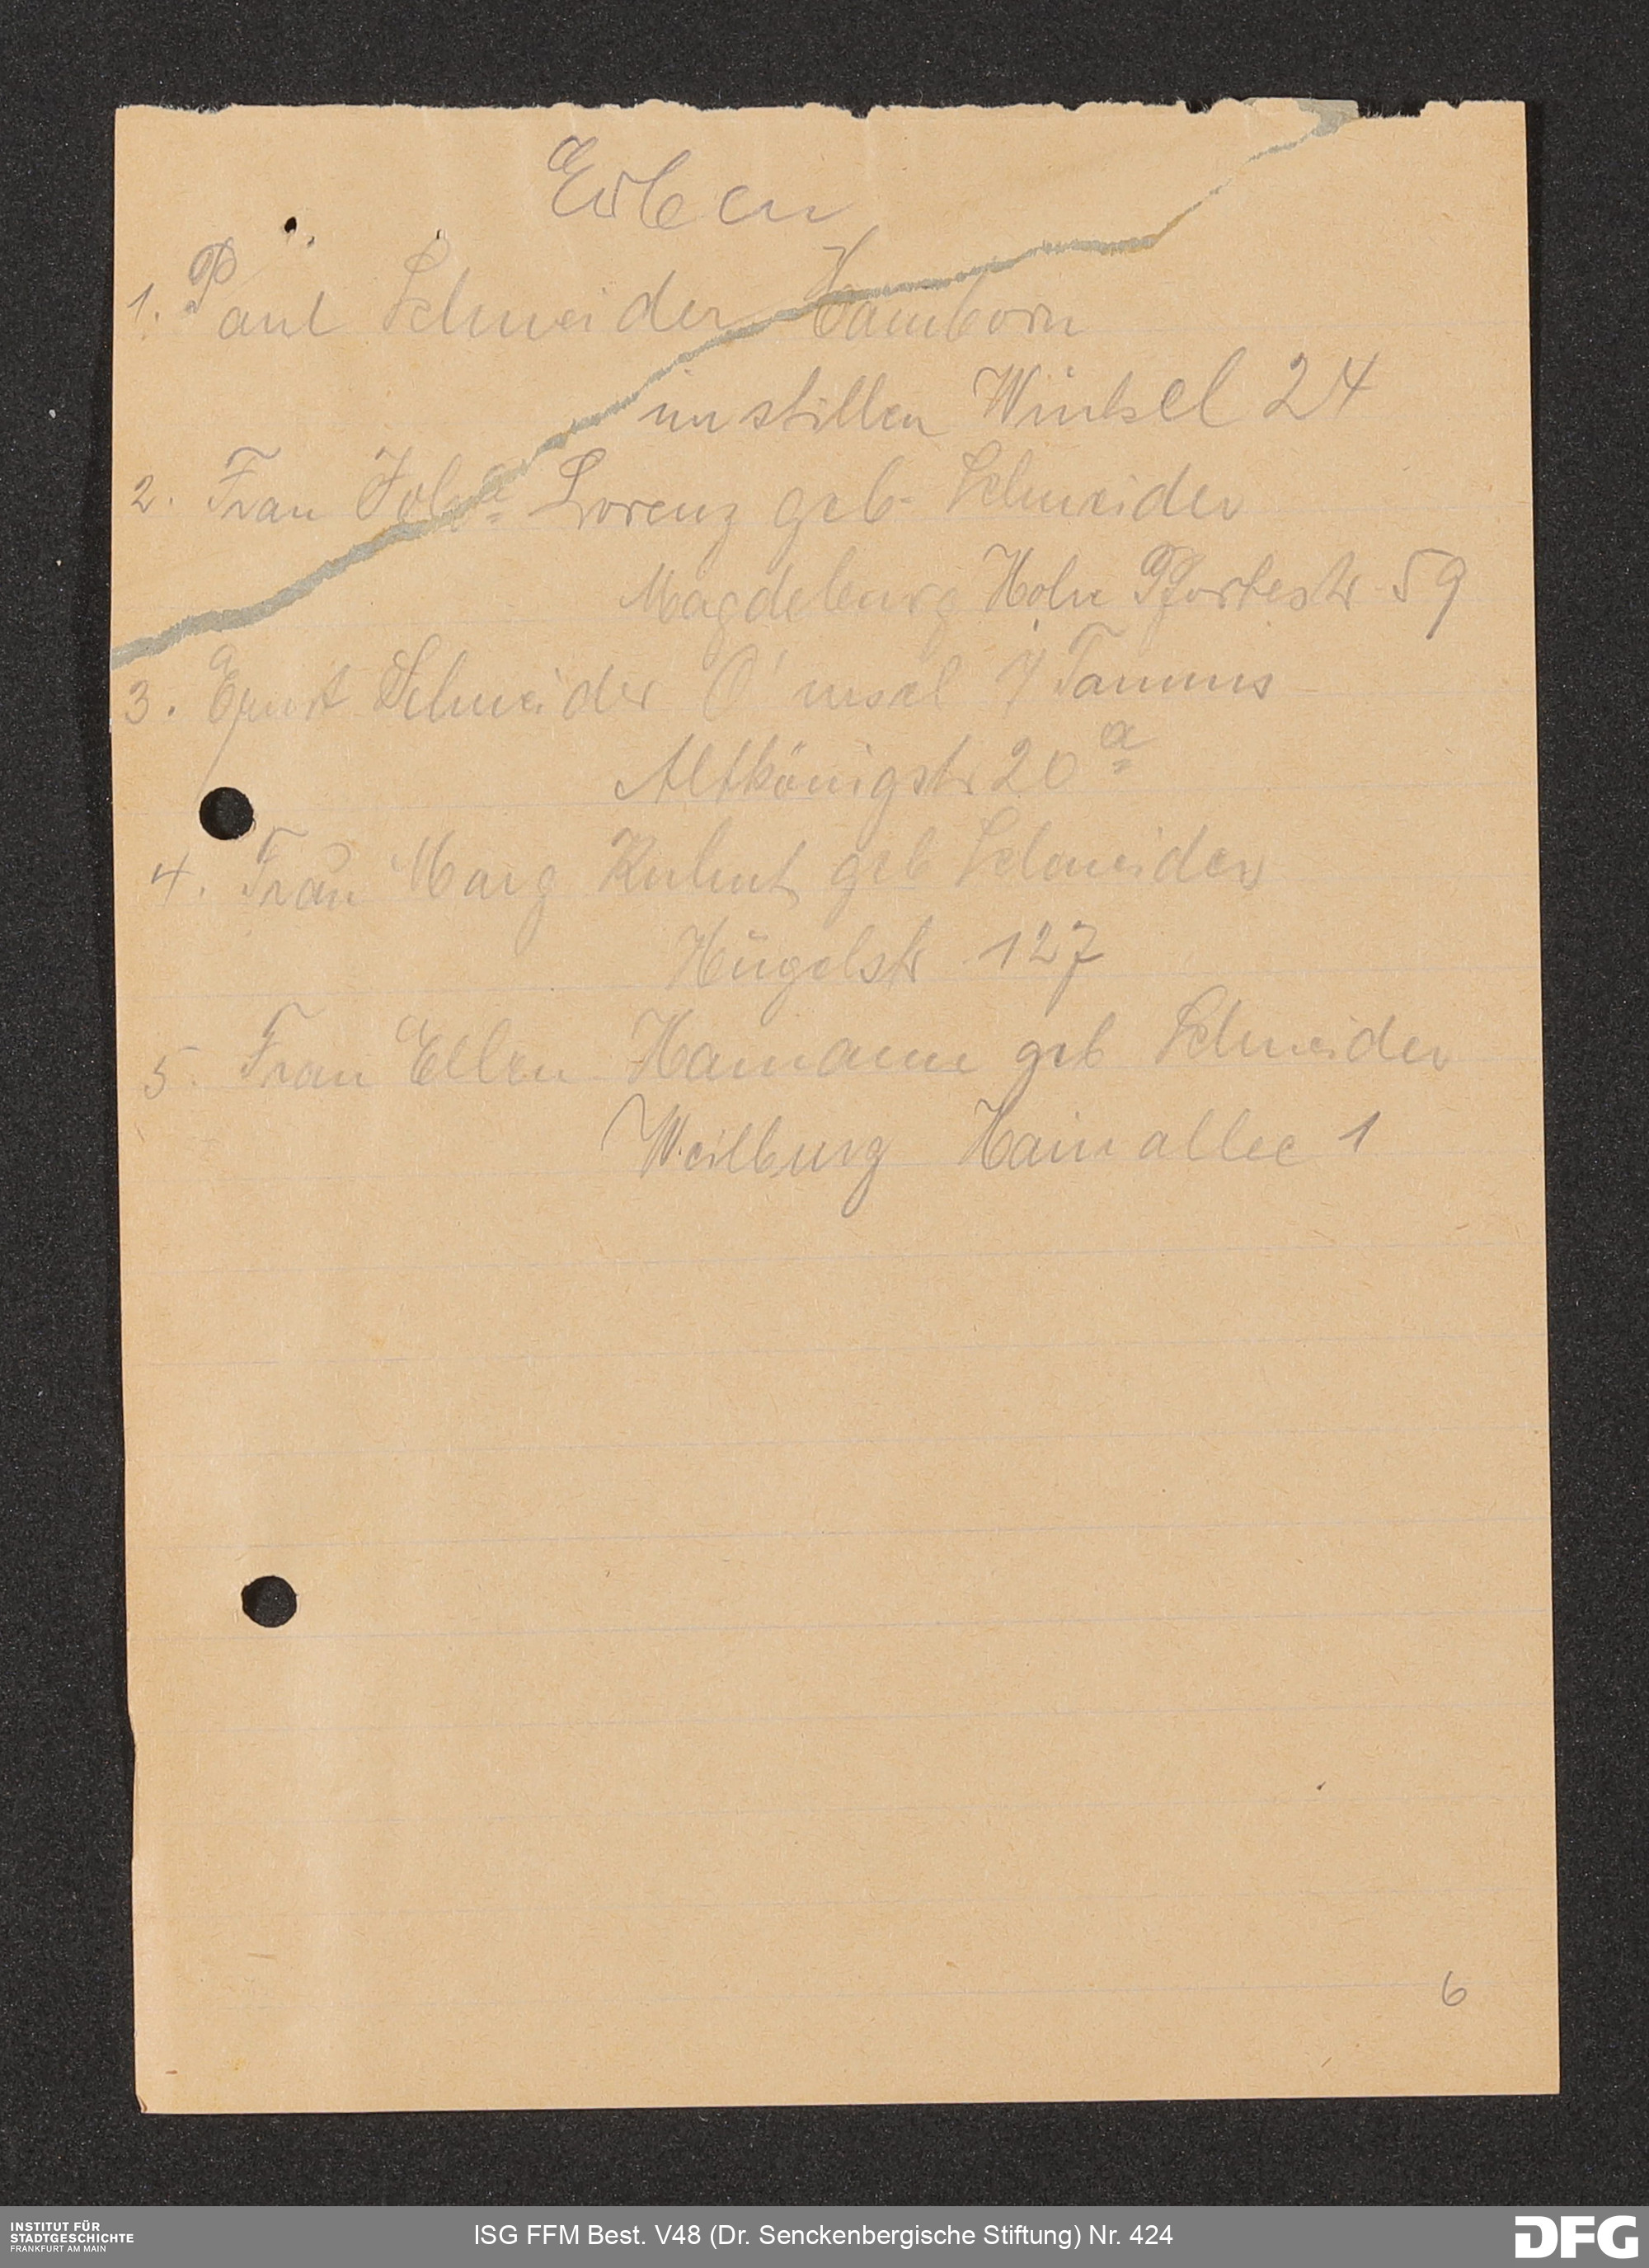 Erben
1. Paul Schneider Hamborn
im stillen Winkel 24
2. Frau Joh.ª Lorenz geb. Schneider
Magdeburg Hohe Pfortestr 59
3. Ernst Schneider O'ursel i/Taunus
Altkönigstr 20 a
4. Frau Marg Kuhnt geb Schneider
Hügelstr 127
5. Frau Ellen Hamann geb Schneider
Weilburg Hainallee 1
6
INSTITUT FÜR
STADTGESCHICHTE
FRANKFURT AM MAIN
ISG FFM Best. V48 (Dr. Senckenbergische Stiftung) Nr. 424
DFG